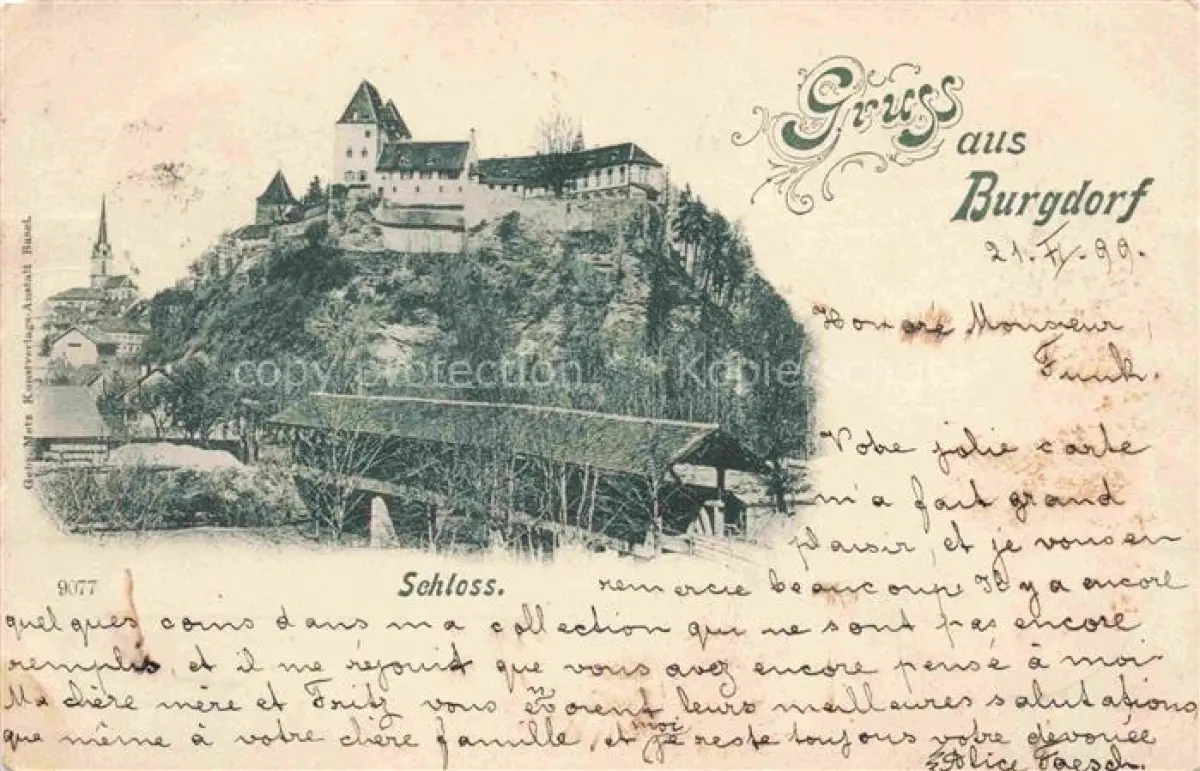 Gruss
aus
Burgdorf
21. IV. 99.
Honoré Monsieur
Funk.
Votre jolie carte
m'a fait grand
plaisir, et je vous en
remercie beaucoup Il y a encore
quelques coins dans ma collection qui ne sont pas encore
remplis, et il me réjouit que vous avez encore pensé à moi
Ma chère mère et Fritz vous envoient leurs meilleures salutations
que même à votre chère famille, et moi je reste toujours votre dévouée
Alice Faesch.
Schloss.
9077
Metz Kunstverlags-Anstalt Basel.
copy protection Kopierschutz